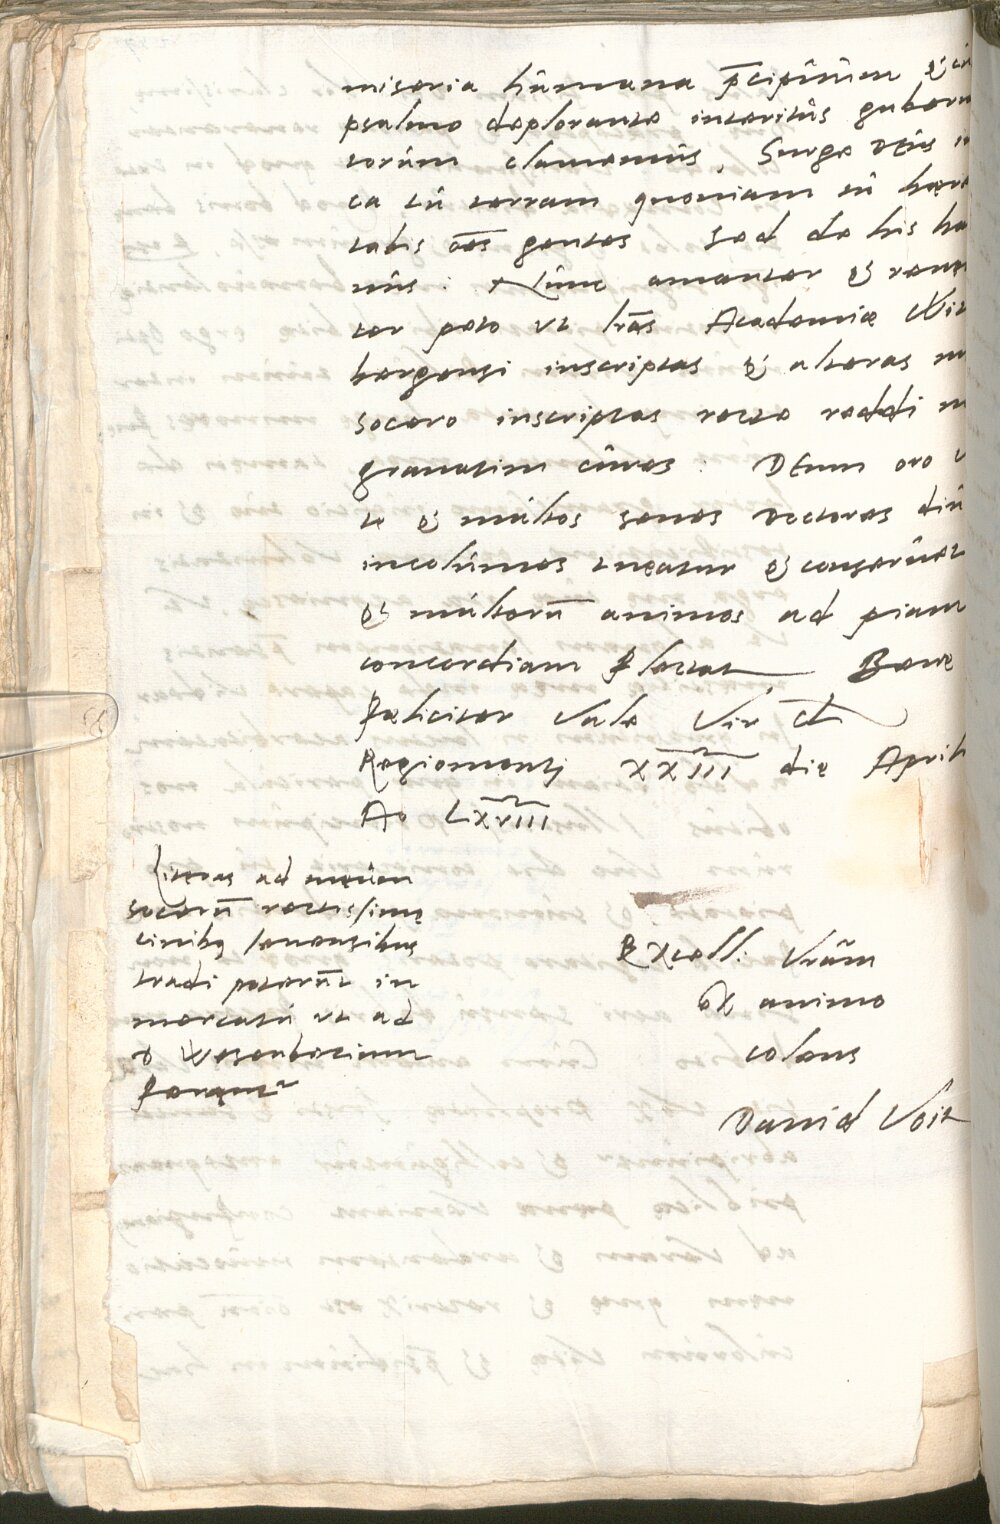 miseria humana p̄cipuum & cū
psalmo deplorante interitus guberna
torum clamemus. Surge DEus iu
ca tu terram quoniam tu hære
tabis oēs gentes Sed de his ha
nus: Nunc amanter & reue
ter peto vt lrās Academiæ Wit
bergensi inscriptas & alteras m
socero inscriptas recte reddi m
gnauatim cures: DEum oro v
te & multos senes Doctores diu
incolumes tueatur & conseruet
& multorū animos ad piam
concordiam flectat Bene
fœliciter Vale Vir Cl
Regiomonti XXIII die April
Ao LXVIII
Literas ad meum
socerū rectissime
ciuibus Ienensibus
tradi poterūt in
mercatu vt ad
D Wesenbecium
ferantur
Excell: Vrām
ex animo
colens
Dauid Voit